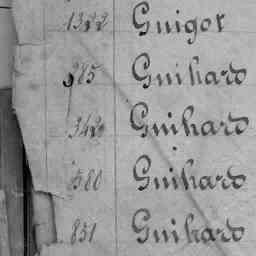 1322 Guigot
985 Guihard
942 Guihard
1580 Guihard
851 Guihard